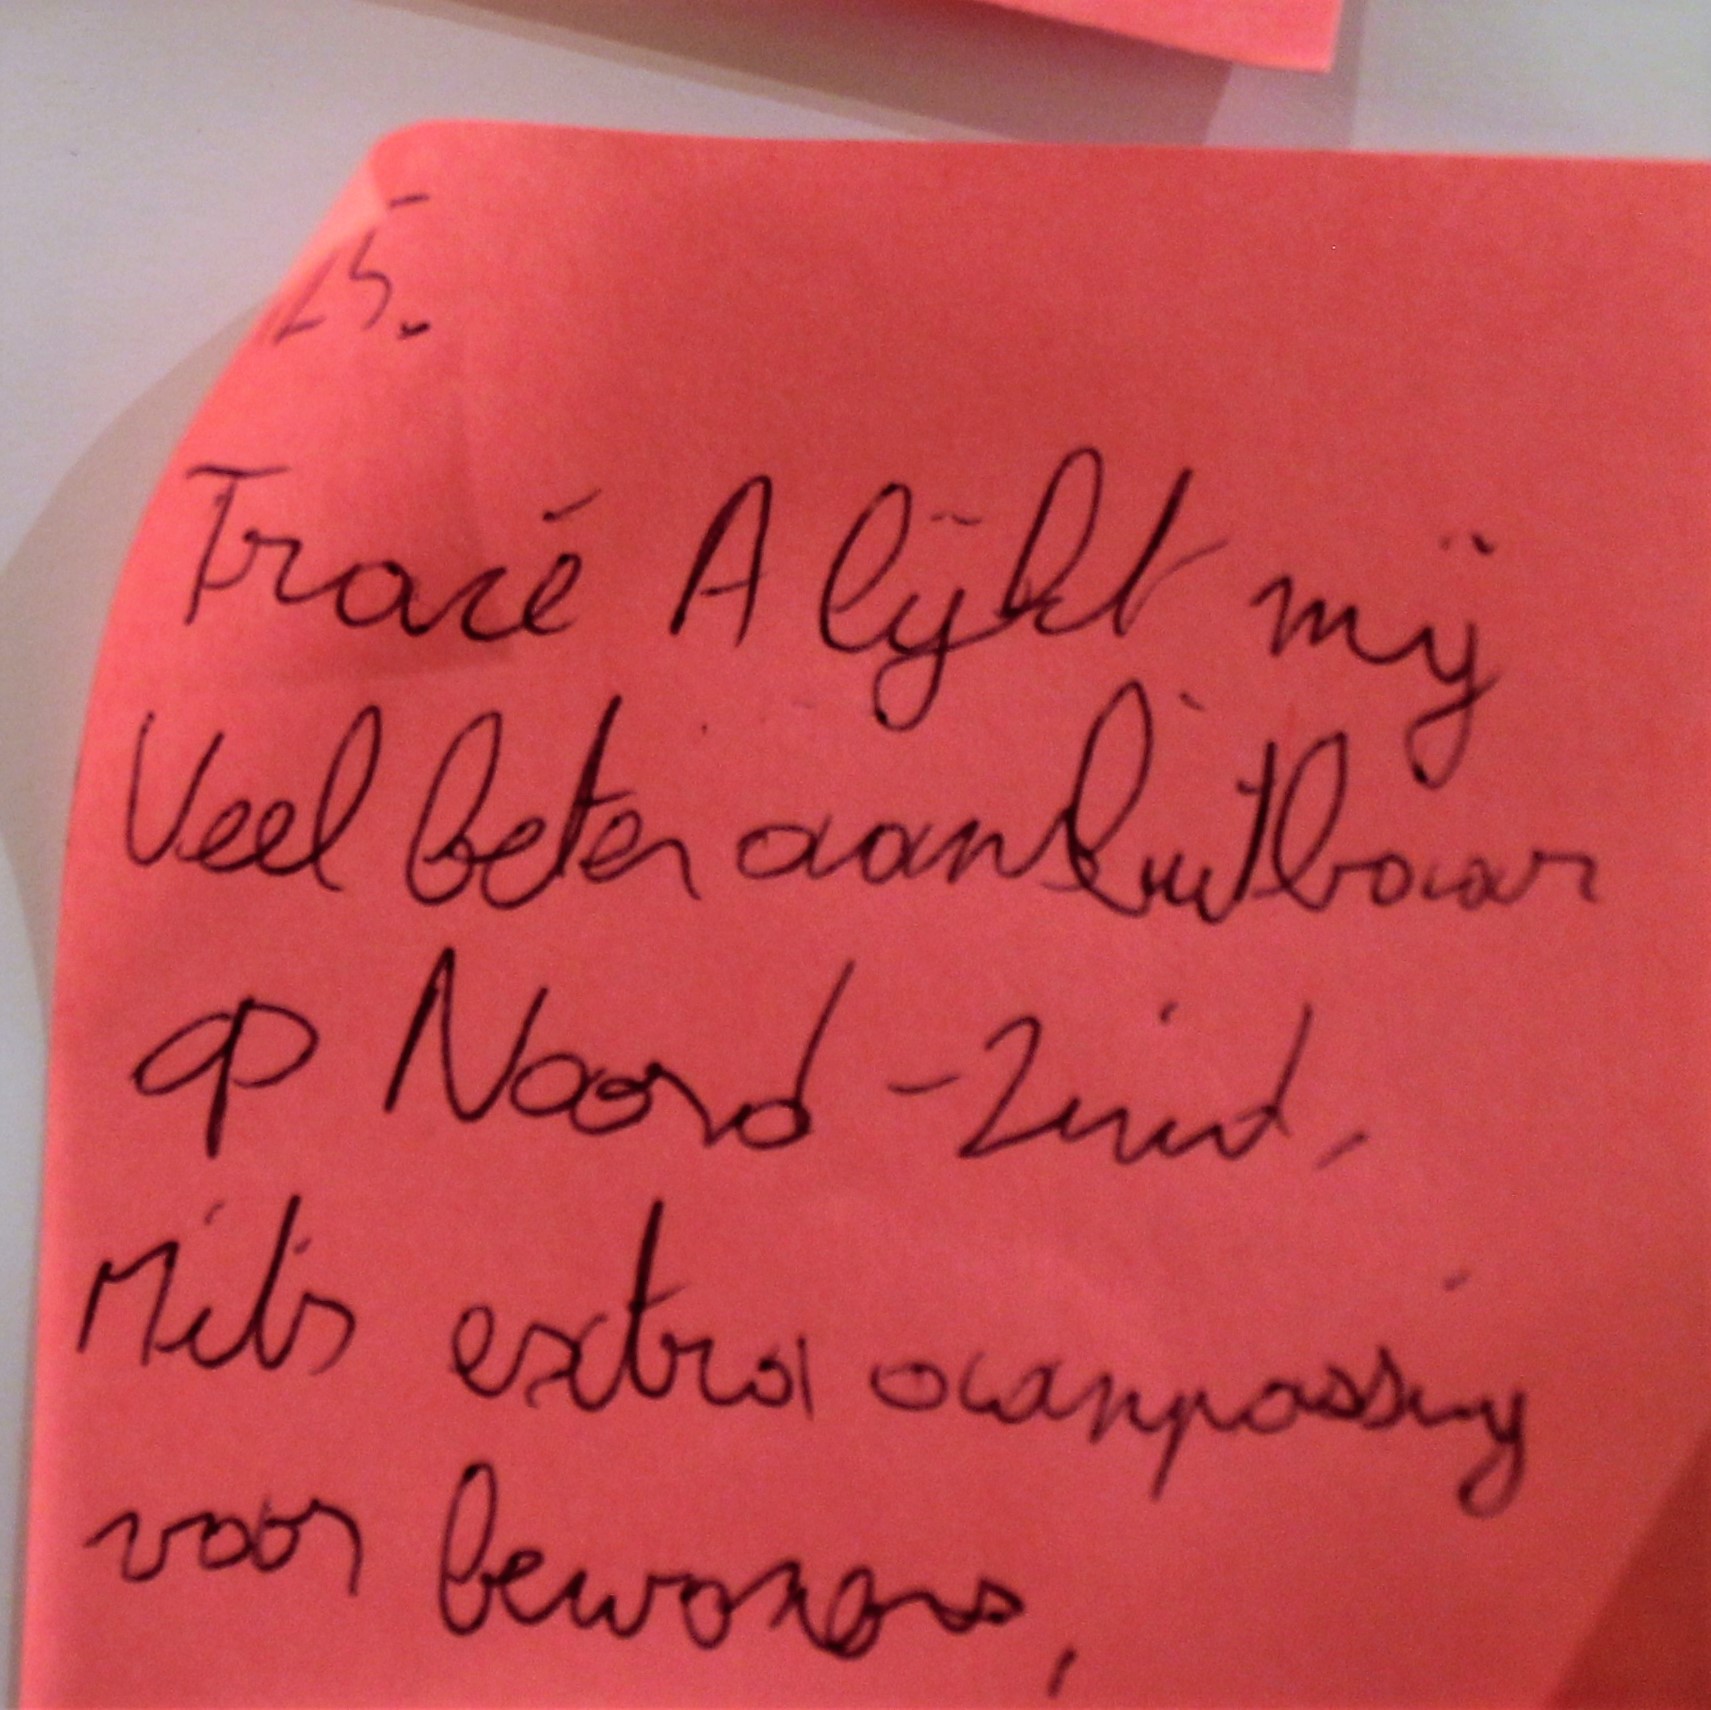 25.
Tracé A lijkt mij
Veel beter aansluitbaar
op Noord-Zuid,
Mits extra aanpassing
voor bewoners,